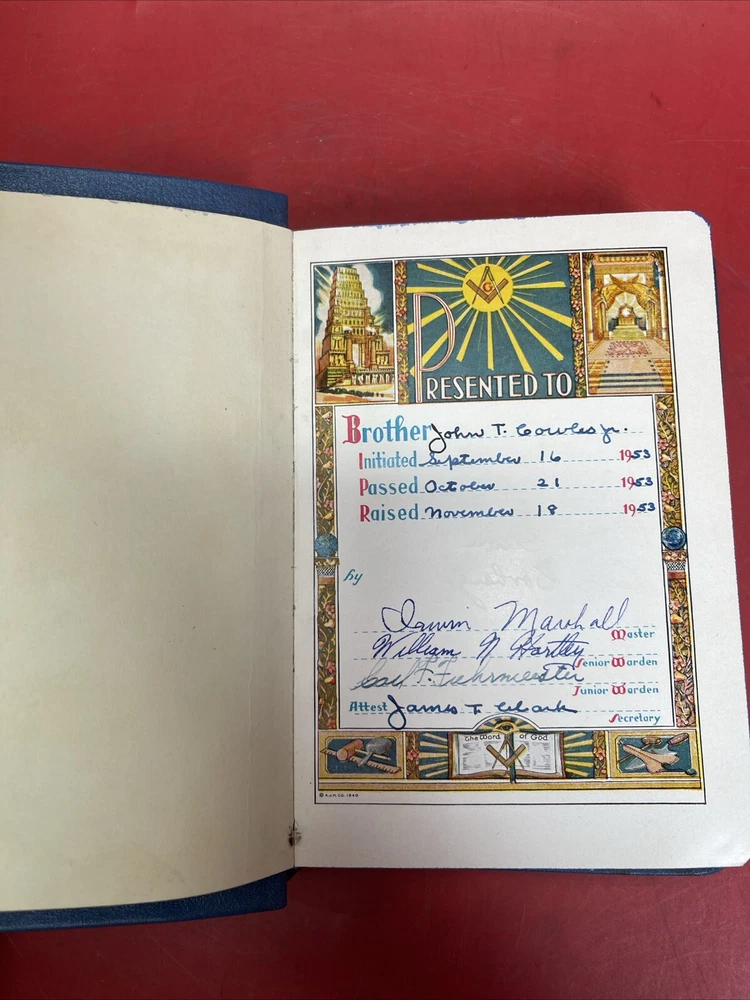 G
PRESENTED TO
Brother John T. Cowles Jr.
Initiated September 16 1953
Passed October 21 1953
Raised November 18 1953
by
Marshall
Master
William N Hartley
Senior Warden
Carl F. Fuhrmeister
Junior Warden
Attest James T Clark
Secretary
The Word of God
© A.J.H. CO. 1940